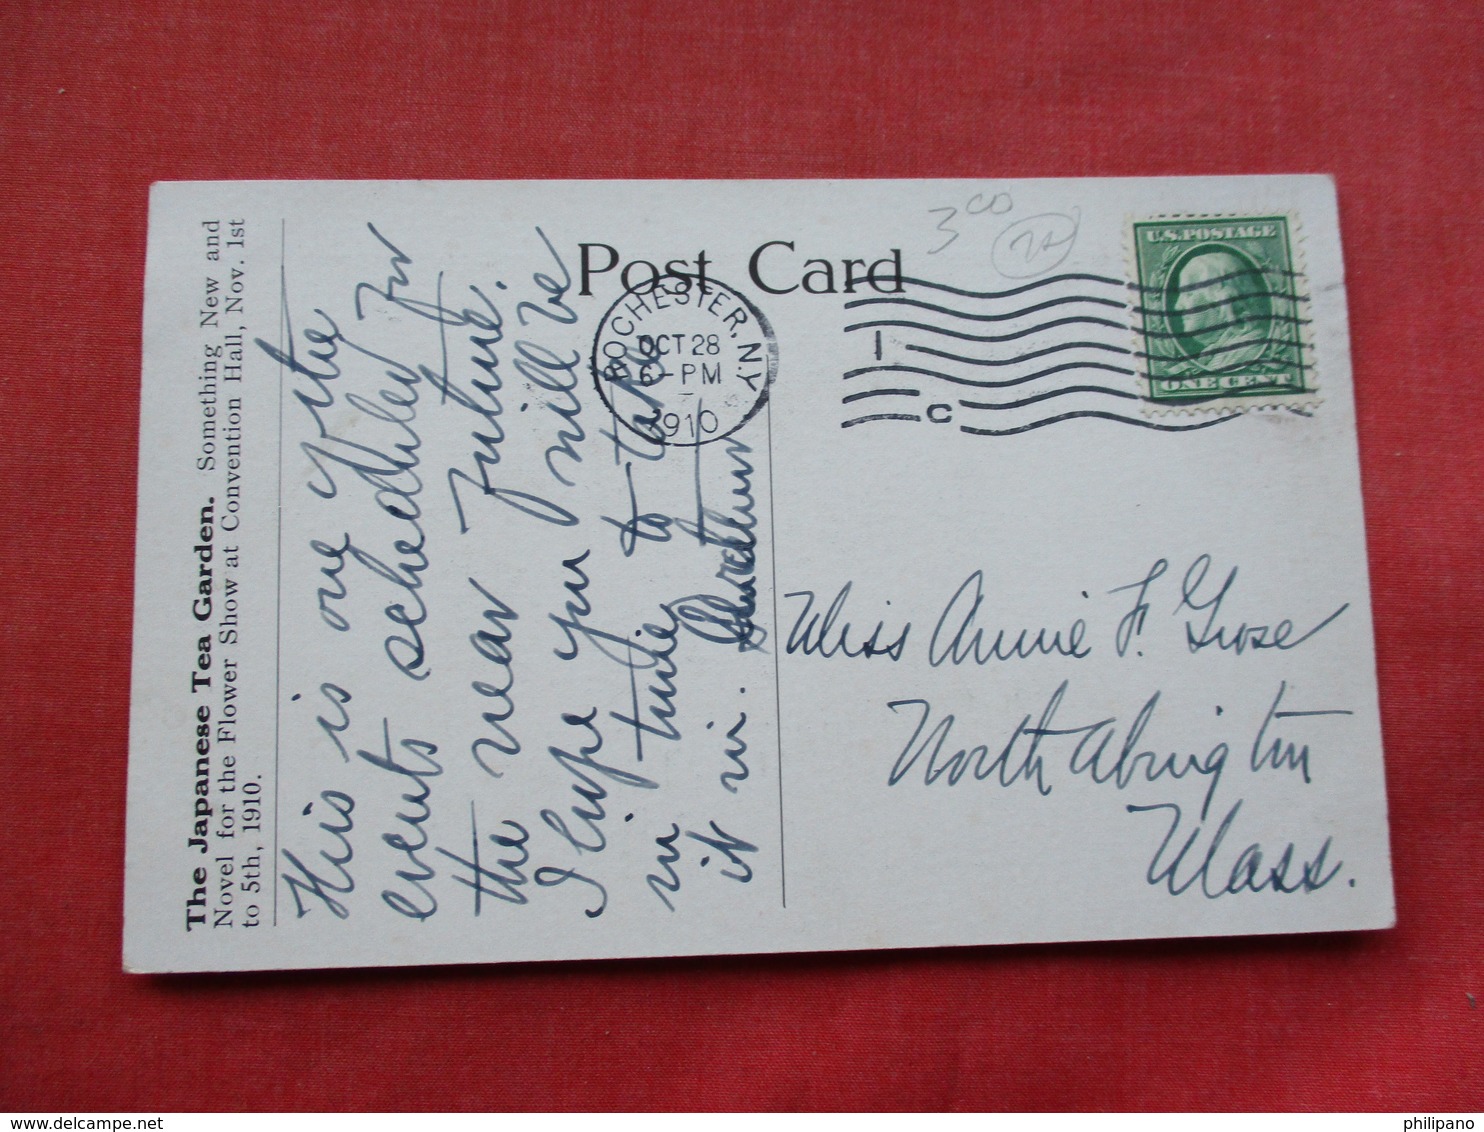 The Japanese Tea Garden. Something New and
Novel for the Flower Show at Convention Hall, Nov. 1st
to 5th, 1910.
This is one of the
events schedluled for
the near future.
I hope you will be
in time to take
it in.
Post Card
3 00
ROCHESTER, N.Y.
OCT 28
6-PM
1910
1
C
U.S. POSTAGE
ONE CENT
Miss Annie F. Grose
North Abington
Mass.
philipano